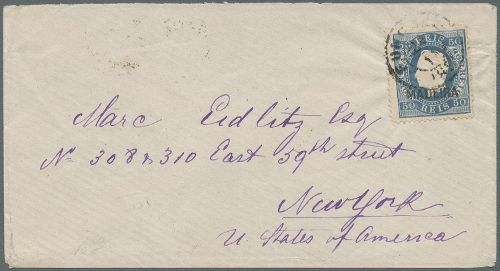 50 REIS 50
MADEIRA
50 REIS 50
Marc Eidlitz Esq
No 308 & 310 East 59th street
New York
U. States of America